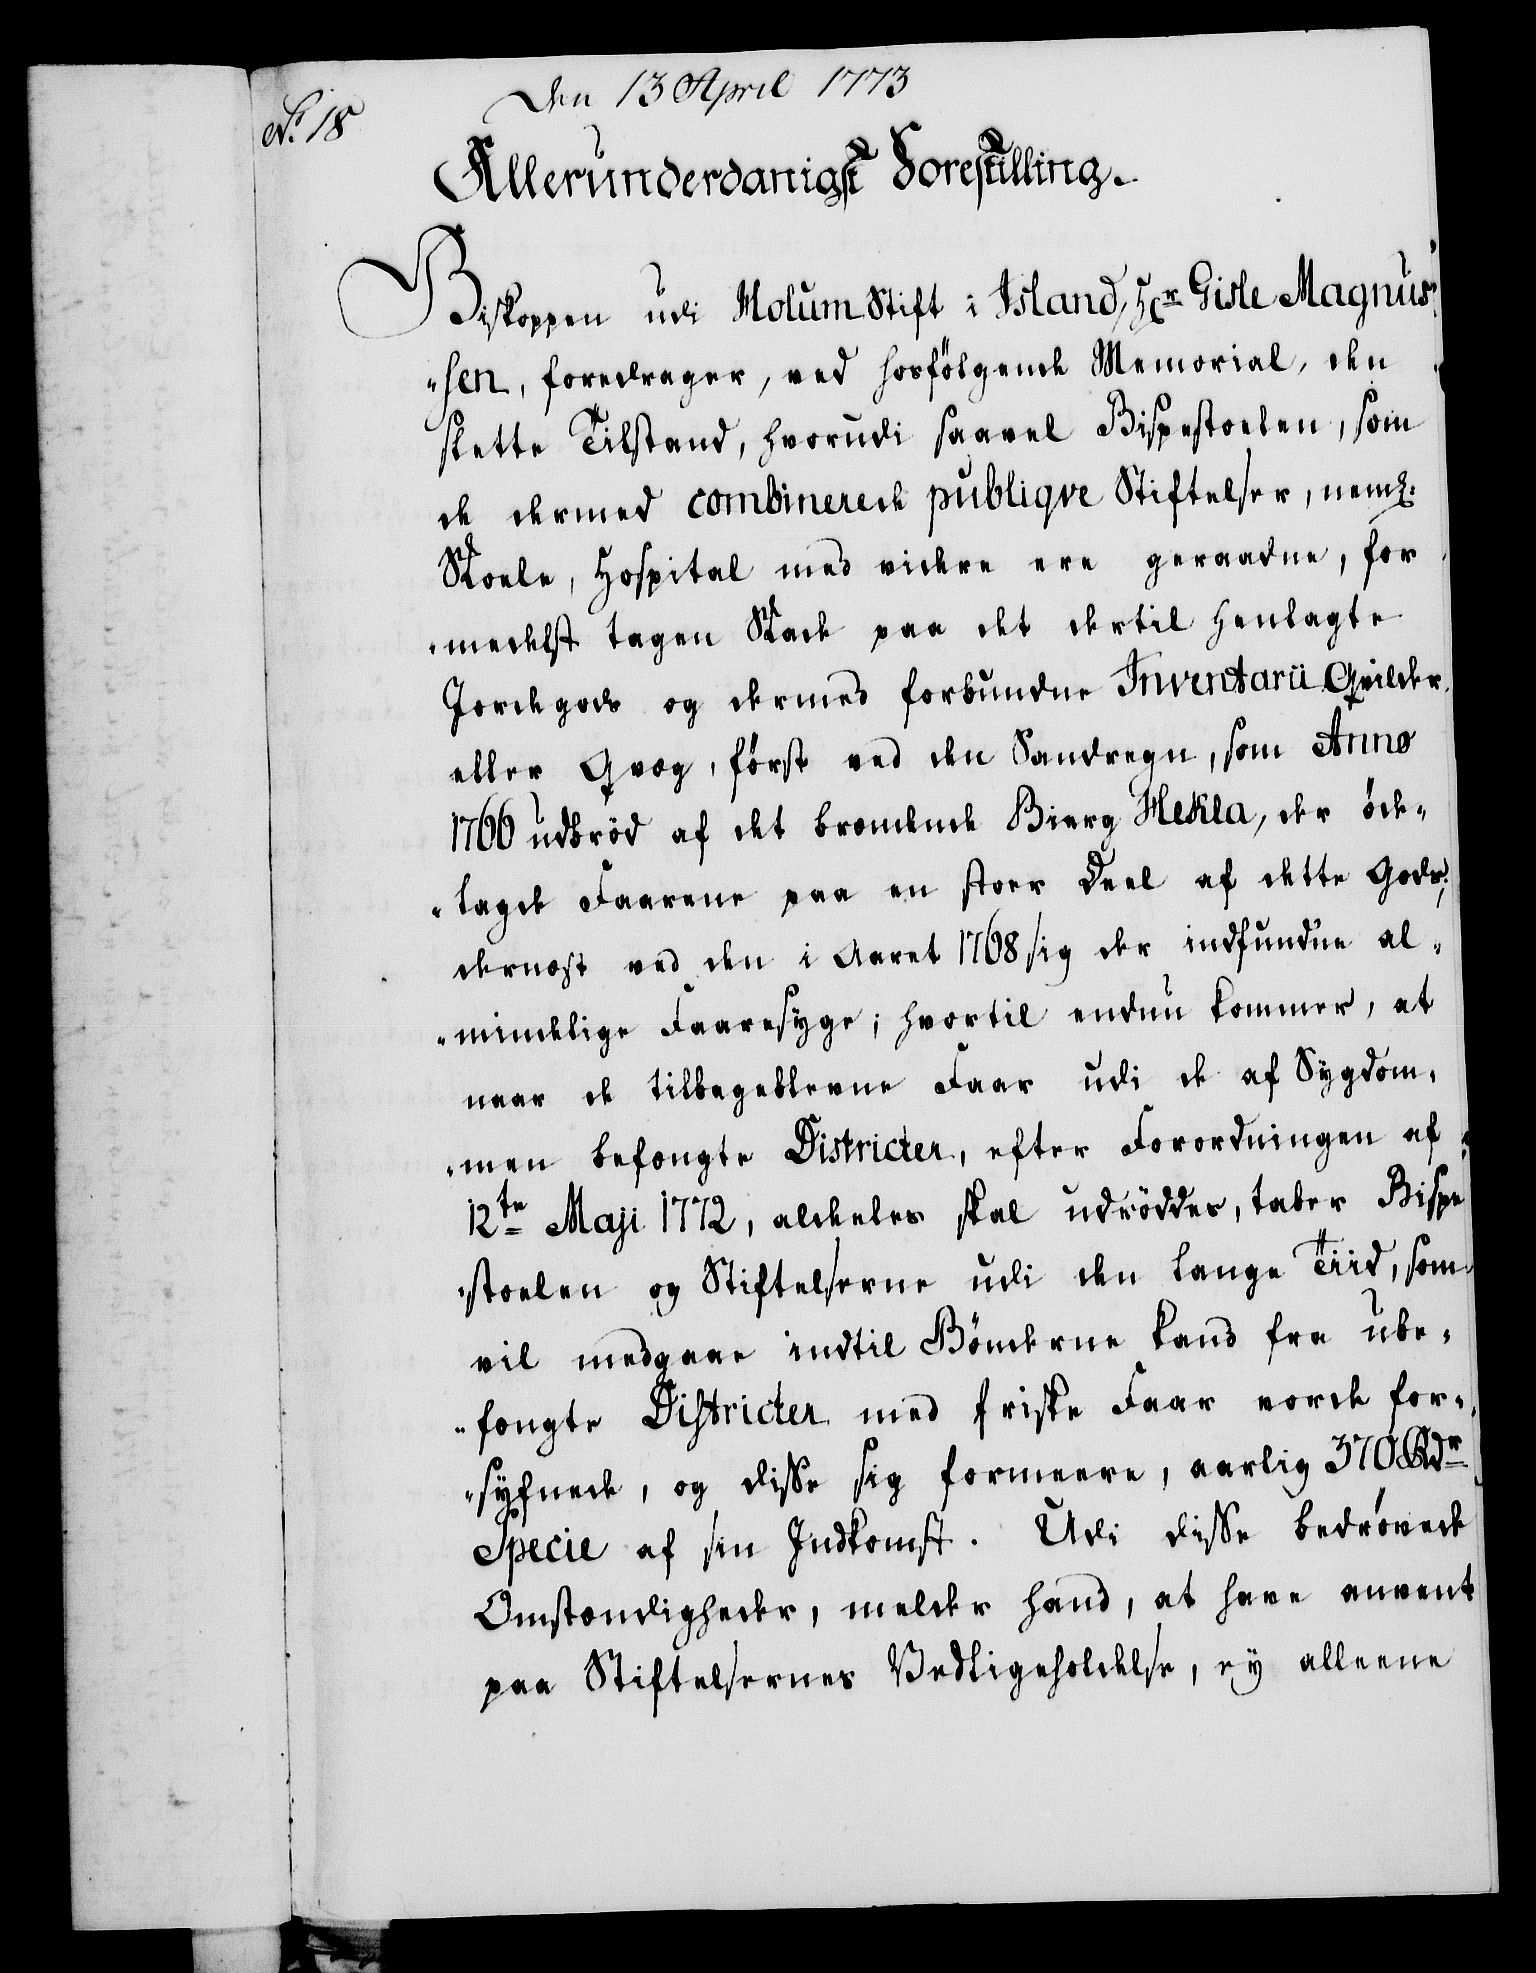 No. 18
Den 13 April 1773
Allerunderdanigst Forestilling.
Biskoppen udi Holum Stift i Island, Hr. Gisle Magnus-
-sen, foredrager, ved hosfölgende Memorial, den
slette Tilstand, hvorudi saavel Bispestoelen, som
de dermed combinerede publiqve Stiftelser, neml.
Skoele, Hospital med videre ere geraadne, for
-medelst tagen Skade paa det dertil henlagte
Jordegods og dermed forbundne Inventarii Qvilder
eller Qvæg, först ved den Sandregn, som Anno
1766 udbröd af det brændende Bierg Hekla, der öde-
-lagde Faarene paa en stoer Deel af dette Gods;
dernæst ved den i Aaret 1768 sig der indfundne al-
-mindelige Faaresyge; hvortil endnu kommer, at
naar de tilbageblevne Faar udi de af Sygdom-
-men befængte Districter, efter Forordningen af
12te Maji 1772, aldeles skal udröddes, taber Bispe
-stoelen og Stiftelserne udi den lange Tiid, som
vil medgaae indtil Bönderne kand fra ube-
-fængte Districter med friske Faar vorde for-
-syfnede, og disse sig formeere, aarlig 370 Rdr
Specie af sin Indkomst. Udi disse bedrövede
Omstændigheder, melder hand, at have anvent
paa Stiftelsernes Vedligeholdelse, ey alleene